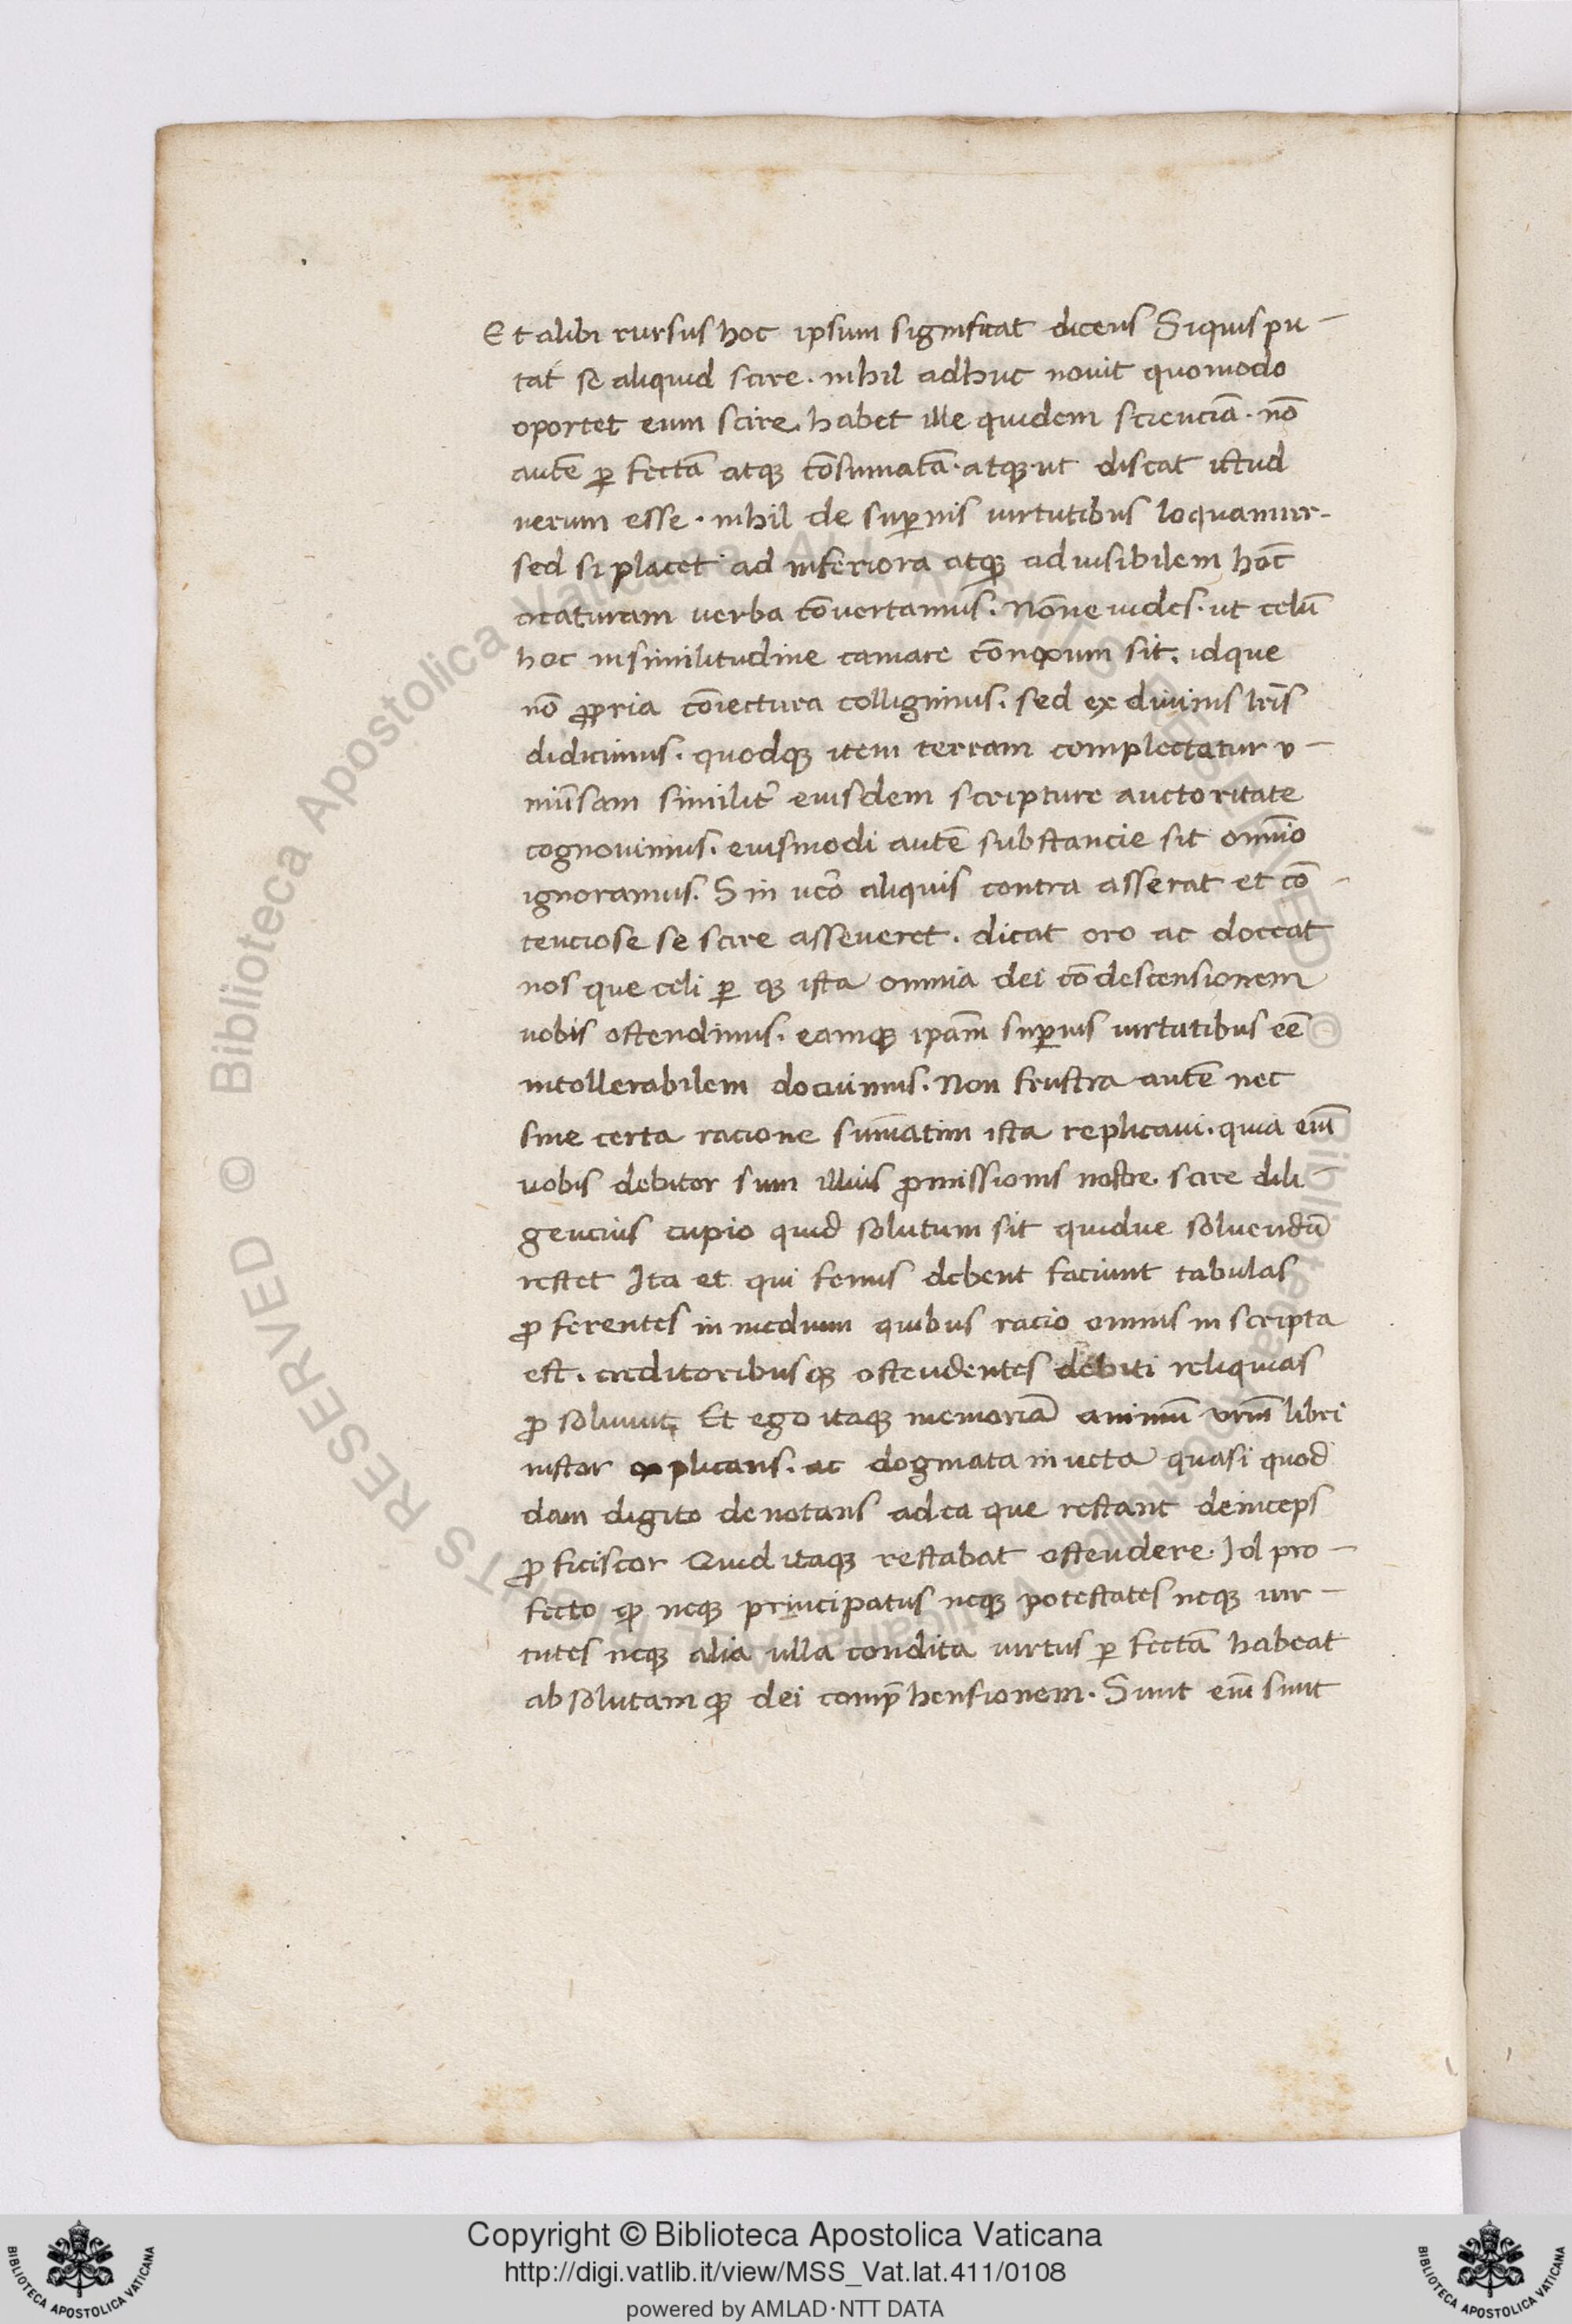 Et alibi rursus hoc ipsum significat dicens Siquis pu-
tat se aliquid scire. nihil adhuc novit quomodo
oportet eum scire. habet ille quidem scienciā. nō
autē ꝑfectā atqꝫ cōsumatā. atqꝫ ut discat istud
verum esse. nihil de suꝑnis uirtutibus loquamur.
sed si placet ad inferiora atqꝫ ad uisibilem hāc
creaturam uerba cōvertamus. Nōne uides. ut celū
hoc in similitudine camare cōnexum sit. idque
nō ꝓpria cōiectura colligimus. sed ex divinis lr̄is
didicimus. quodqꝫ item terram complectatur v-
niu̅sam similit̄ eiusdem scripture auctoritate
cognovimus. cuiusmodi autē substancie sit om̄io
ignoramus. Sin ūo aliquis contra asserat et cō-
tenciose se scire asseveret. dicat oro ac doceat
nos que celi ꝑ qꝫ ista omnia dei cōdescensionem
uobis ostendimus. eamqꝫ ipam̄ suꝑius uirtutibus eē
intollerabilem docuimus. Non frustra autē nec
sine certa racione sum̄atim ista replicavi. quia eni̅
uobis debitor sum illius ꝓmissionis nostre. scire dili-
gencius cupio quid solutum sit quidue solvendū
restet Ita et qui fenus debent faciunt tabulas
ꝓferentes in medium quibus racio omnis inscripta
est. creditoribusqꝫ ostendentes debiti reliquias
ꝓsoluunt, Et ego itaqꝫ memoriā animū vrm̄ libri
instar explicans. ac dogmata invecta quasi quod
dam digito denotans ad ea que restant deinceps
ꝓficiscor Quid itaqꝫ restabat ostendere. Id pro-
fecto qꝫ neqꝫ principatus neqꝫ potestates neqꝫ uir-
tutes neqꝫ alia ulla condita uirtus ꝑfectā habeat
absolutamqꝫ dei comp̄hensionem. Sunt eni̅ sunt
Copyright © Biblioteca Apostolica Vaticana
http://digi.vatlib.it/view/MSS_Vat.lat.411/0108
powered by AMLAD·NTT DATA
BIBLIOTECA APOSTOLICA VATICANA
BIBLIOTECA APOSTOLICA VATICANA
© Biblioteca Apostolica Vaticana ALL RIGHTS RESERVED
© Biblioteca Apostolica Vaticana ALL RIGHTS RESERVED